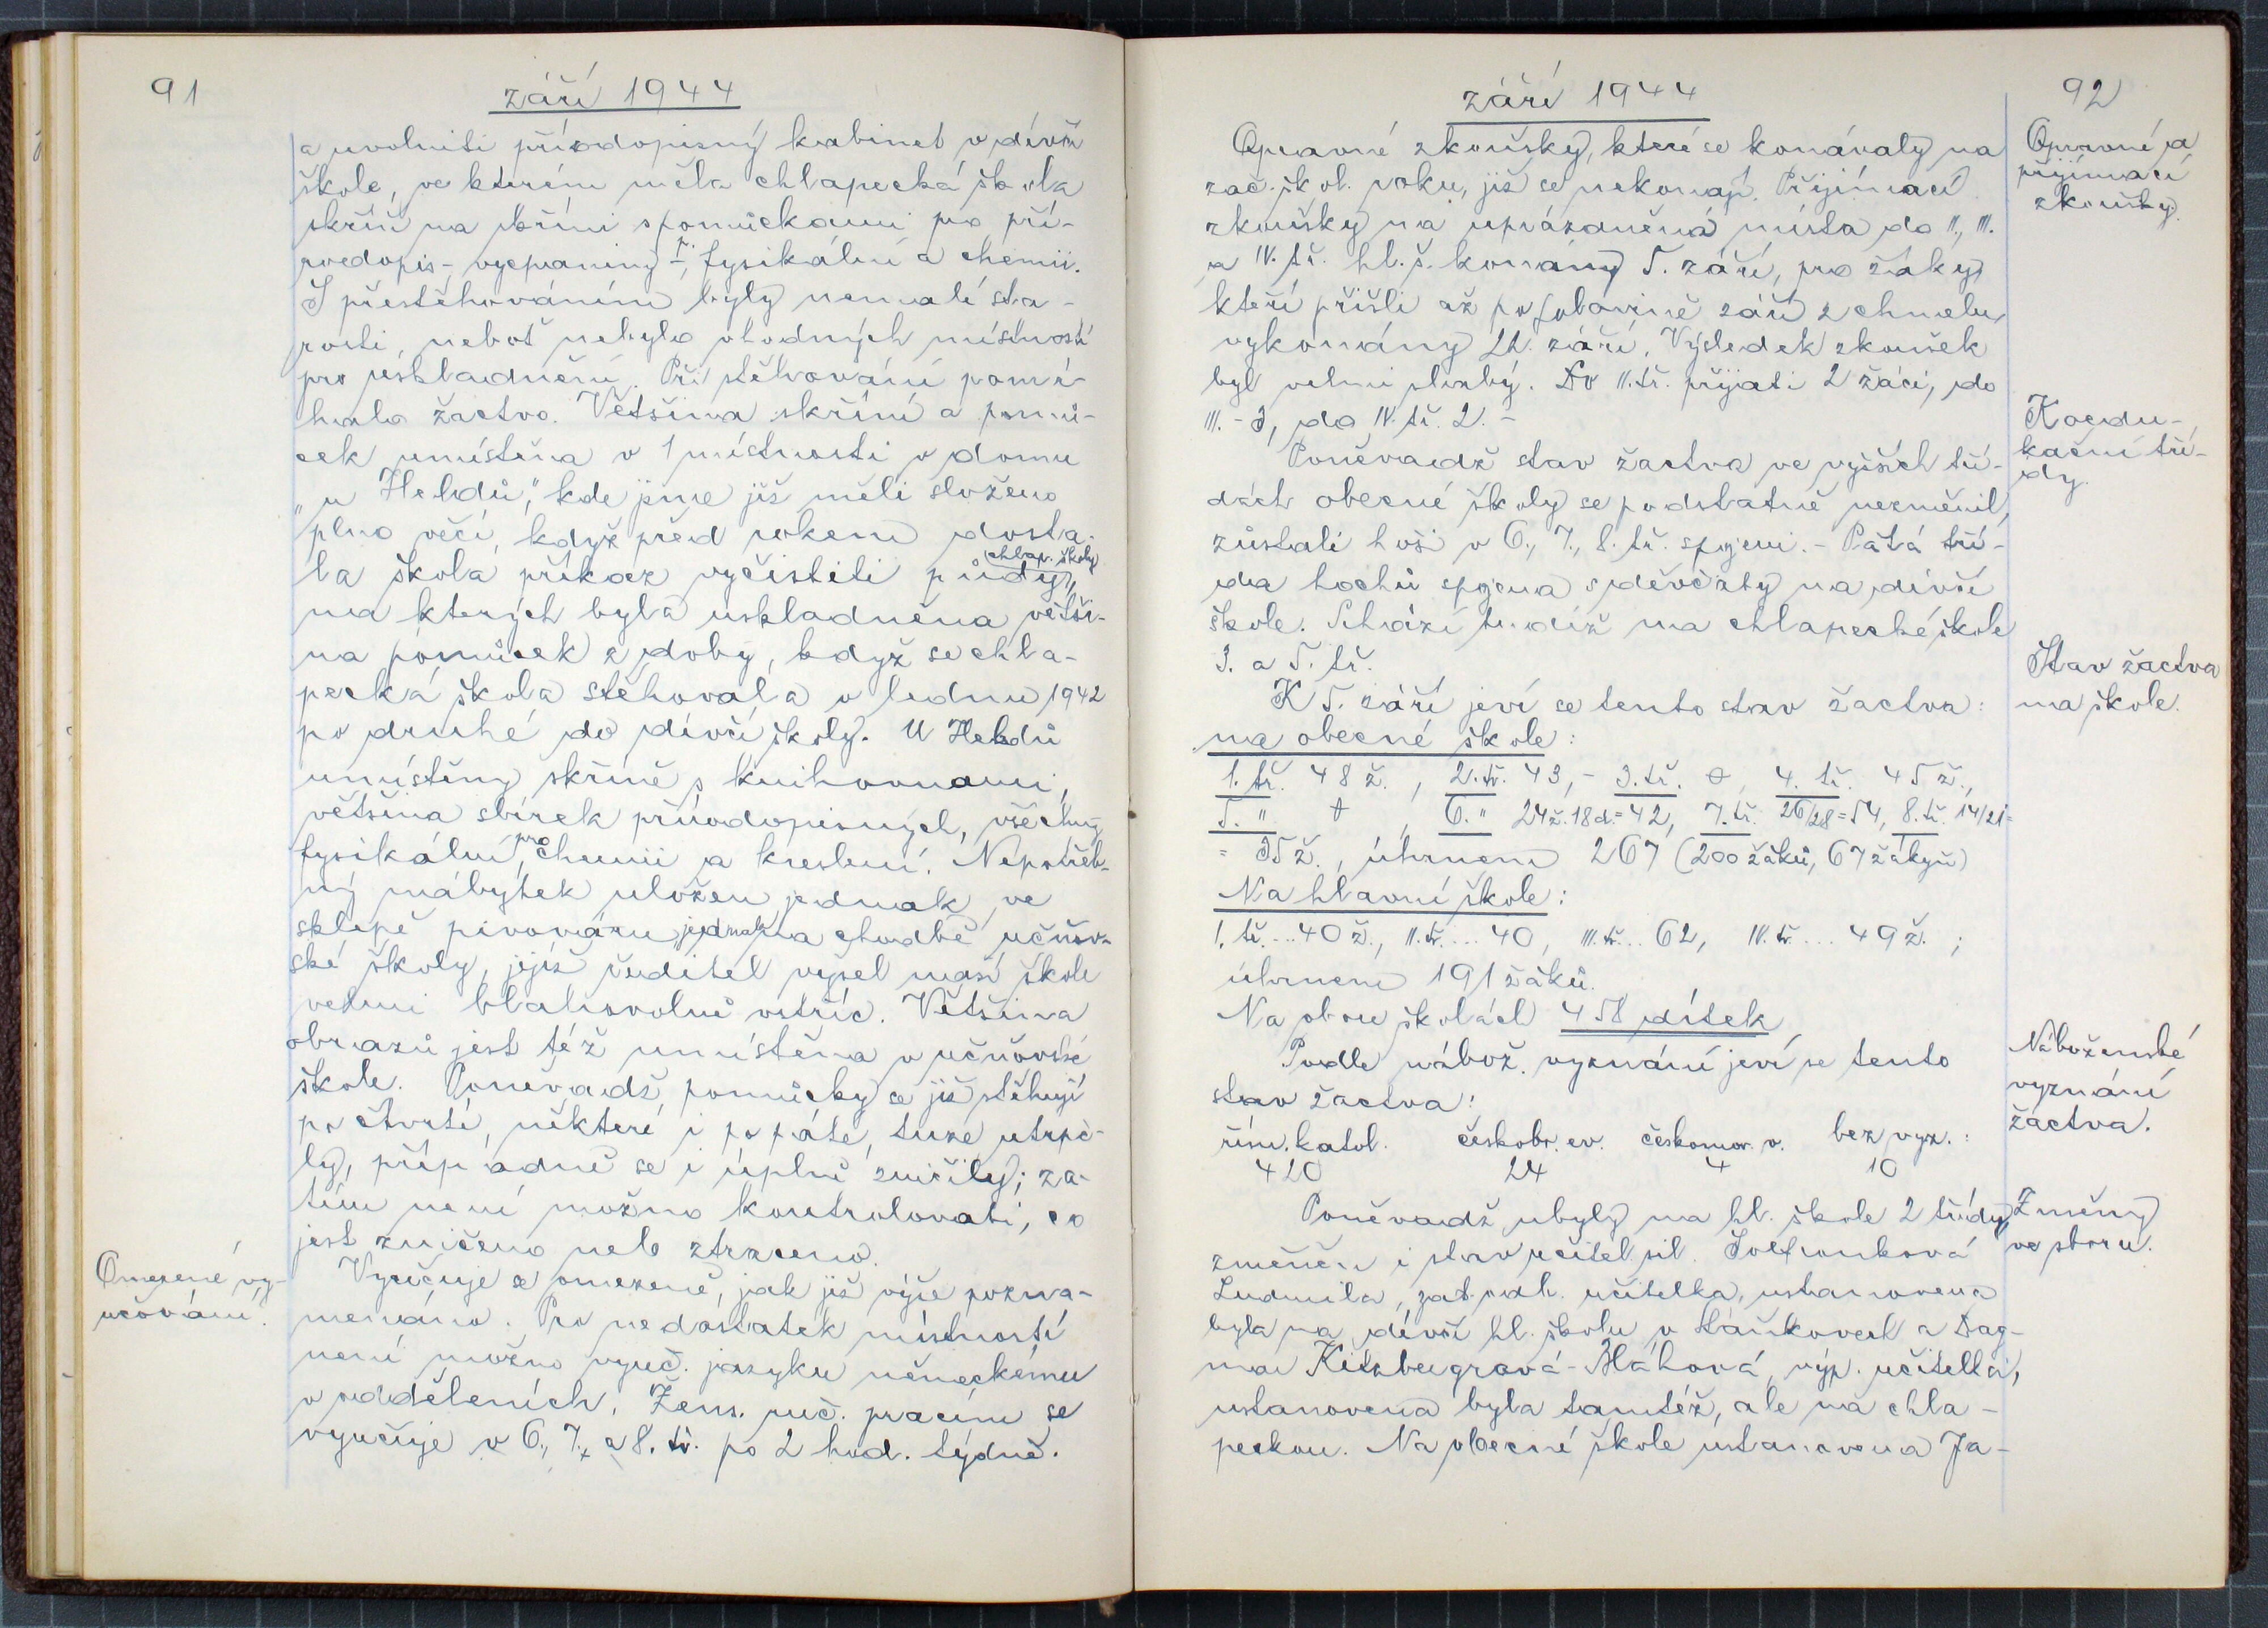 91
září 1944
a uvolniti přírodopisný kabinet v dívčí
škole, ve kterém měla chlapecká škola
skříň na skříni s pomůckami pro pří-
rodopis - vycpaniny -, fysikální a chemii.
S přestěhováním byly nemalé sta-
rosti, neboť nebylo vhodných místností
pro uskladnění. Při stěhování pomá-
halo žactvo. Většina skříní a pomů-
cek umístěna v 1 místnosti v domu
„u Heldů", kde jsme již měli složeno
plno věcí, když před rokem dosta-
la škola příkaz vyčistiti půdy chlap. školy,
na kterých byla uskladněna větši-
na pomůcek z doby, když se chla-
pecká škola stěhovala v lednu 1942
po druhé do dívčí školy. U Heldů
umístěny skříně s knihovnami,
většina sbírek přírodopisných, všechny
fysikální, pro chemii a kreslení. Nepotřeb-
ný nábytek uložen jednak ve
sklepě pivováru jednak na chodbě učňov-
ské školy, jejíž ředitel vyšel naší škole
velmi blahovolně vstříc. Většina
obrazů jest též umístěna v učňovské
škole. Poněvadž pomůcky se již stěhují
po čtvrté, některé i po páté, tuze utrpě-
ly, případně se i úplně zničily; za-
tím není možno kontrolovati, co
jest zničeno nebo ztrzeno.
Omezené vy-
učování.
Vyučuje se omezeně, jak již výše pozna-
menáno. Pro nedostatek místností
není možno vyuč. jazyku německému
v odděleních. Žens. ruč. pracím se
vyučuje v 6., 7., a 8. tř. po 2 hod. týdně.
září 1944
92
Opravné zkoušky, které se konávaly na
zač. škol. roku, již se nekonají. Přijímací
zkoušky na uprázdněná místa do II., III.
a IV. tř. hl. š. konány 5. září, pro žáky,
kteří přišli až po polovině září z chmelu,
vykonány 21. září. Výsledek zkoušek
byl velmi slabý. Do II. tř. přijati 2 žáci, do
III. - 3, do IV. tř. 2. -
Opravné a
přijímací
zkoušky.
Poněvadž stav žactva ve vyšších tří-
dách obecné školy se podstatně nezměnil,
zůstali hoši v 6., 7., 8. tř. spojeni. - Pátá tří-
da hochů spojena s děvčaty na dívčí
škole. Schází tudíž na chlapecké škole
3. a 5. tř.
Koedu-
kační tří-
dy.
K 5. září jeví se tento stav žactva:
na obecné škole:
Stav žactva
na škole.
1. tř. 48 ž., 2. tř. 43, - 3. tř. 0, 4. tř. 45 ž.,
5. " 0, 6. " 24ž. 18d. = 42, 7. tř. 26/28 = 54, 8. tř. 14/21 =
= 35 ž., úhrnem 267 (200 žáků, 67 žákyň)
Na hlavní škole:
I. tř. ... 40 ž., II. tř. ... 40, III. tř. .. 62, IV. tř. ... 49 ž. ;
úhrnem 191 žáků.
Na obou školách 458 dítek
Podle nábož. vyznání jeví se tento
stav žactva:
Náboženské
vyznání
žactva.
řím. katol. českobr. ev. českomor. v. bez vyz. :
420 24 4 10
Poněvadž ubyly na hl. škole 2 třídy,
změněn i stav učitel. sil.
Ludmila, zat. odb. učitelka, ustanovena
byla na dívčí hl. školu v a Dag-
mar výp. učitelka,
ustanovena byla tamtéž, ale na chla-
peckou. Na obecné škole ustanovena Ja-
Změny
ve sboru.